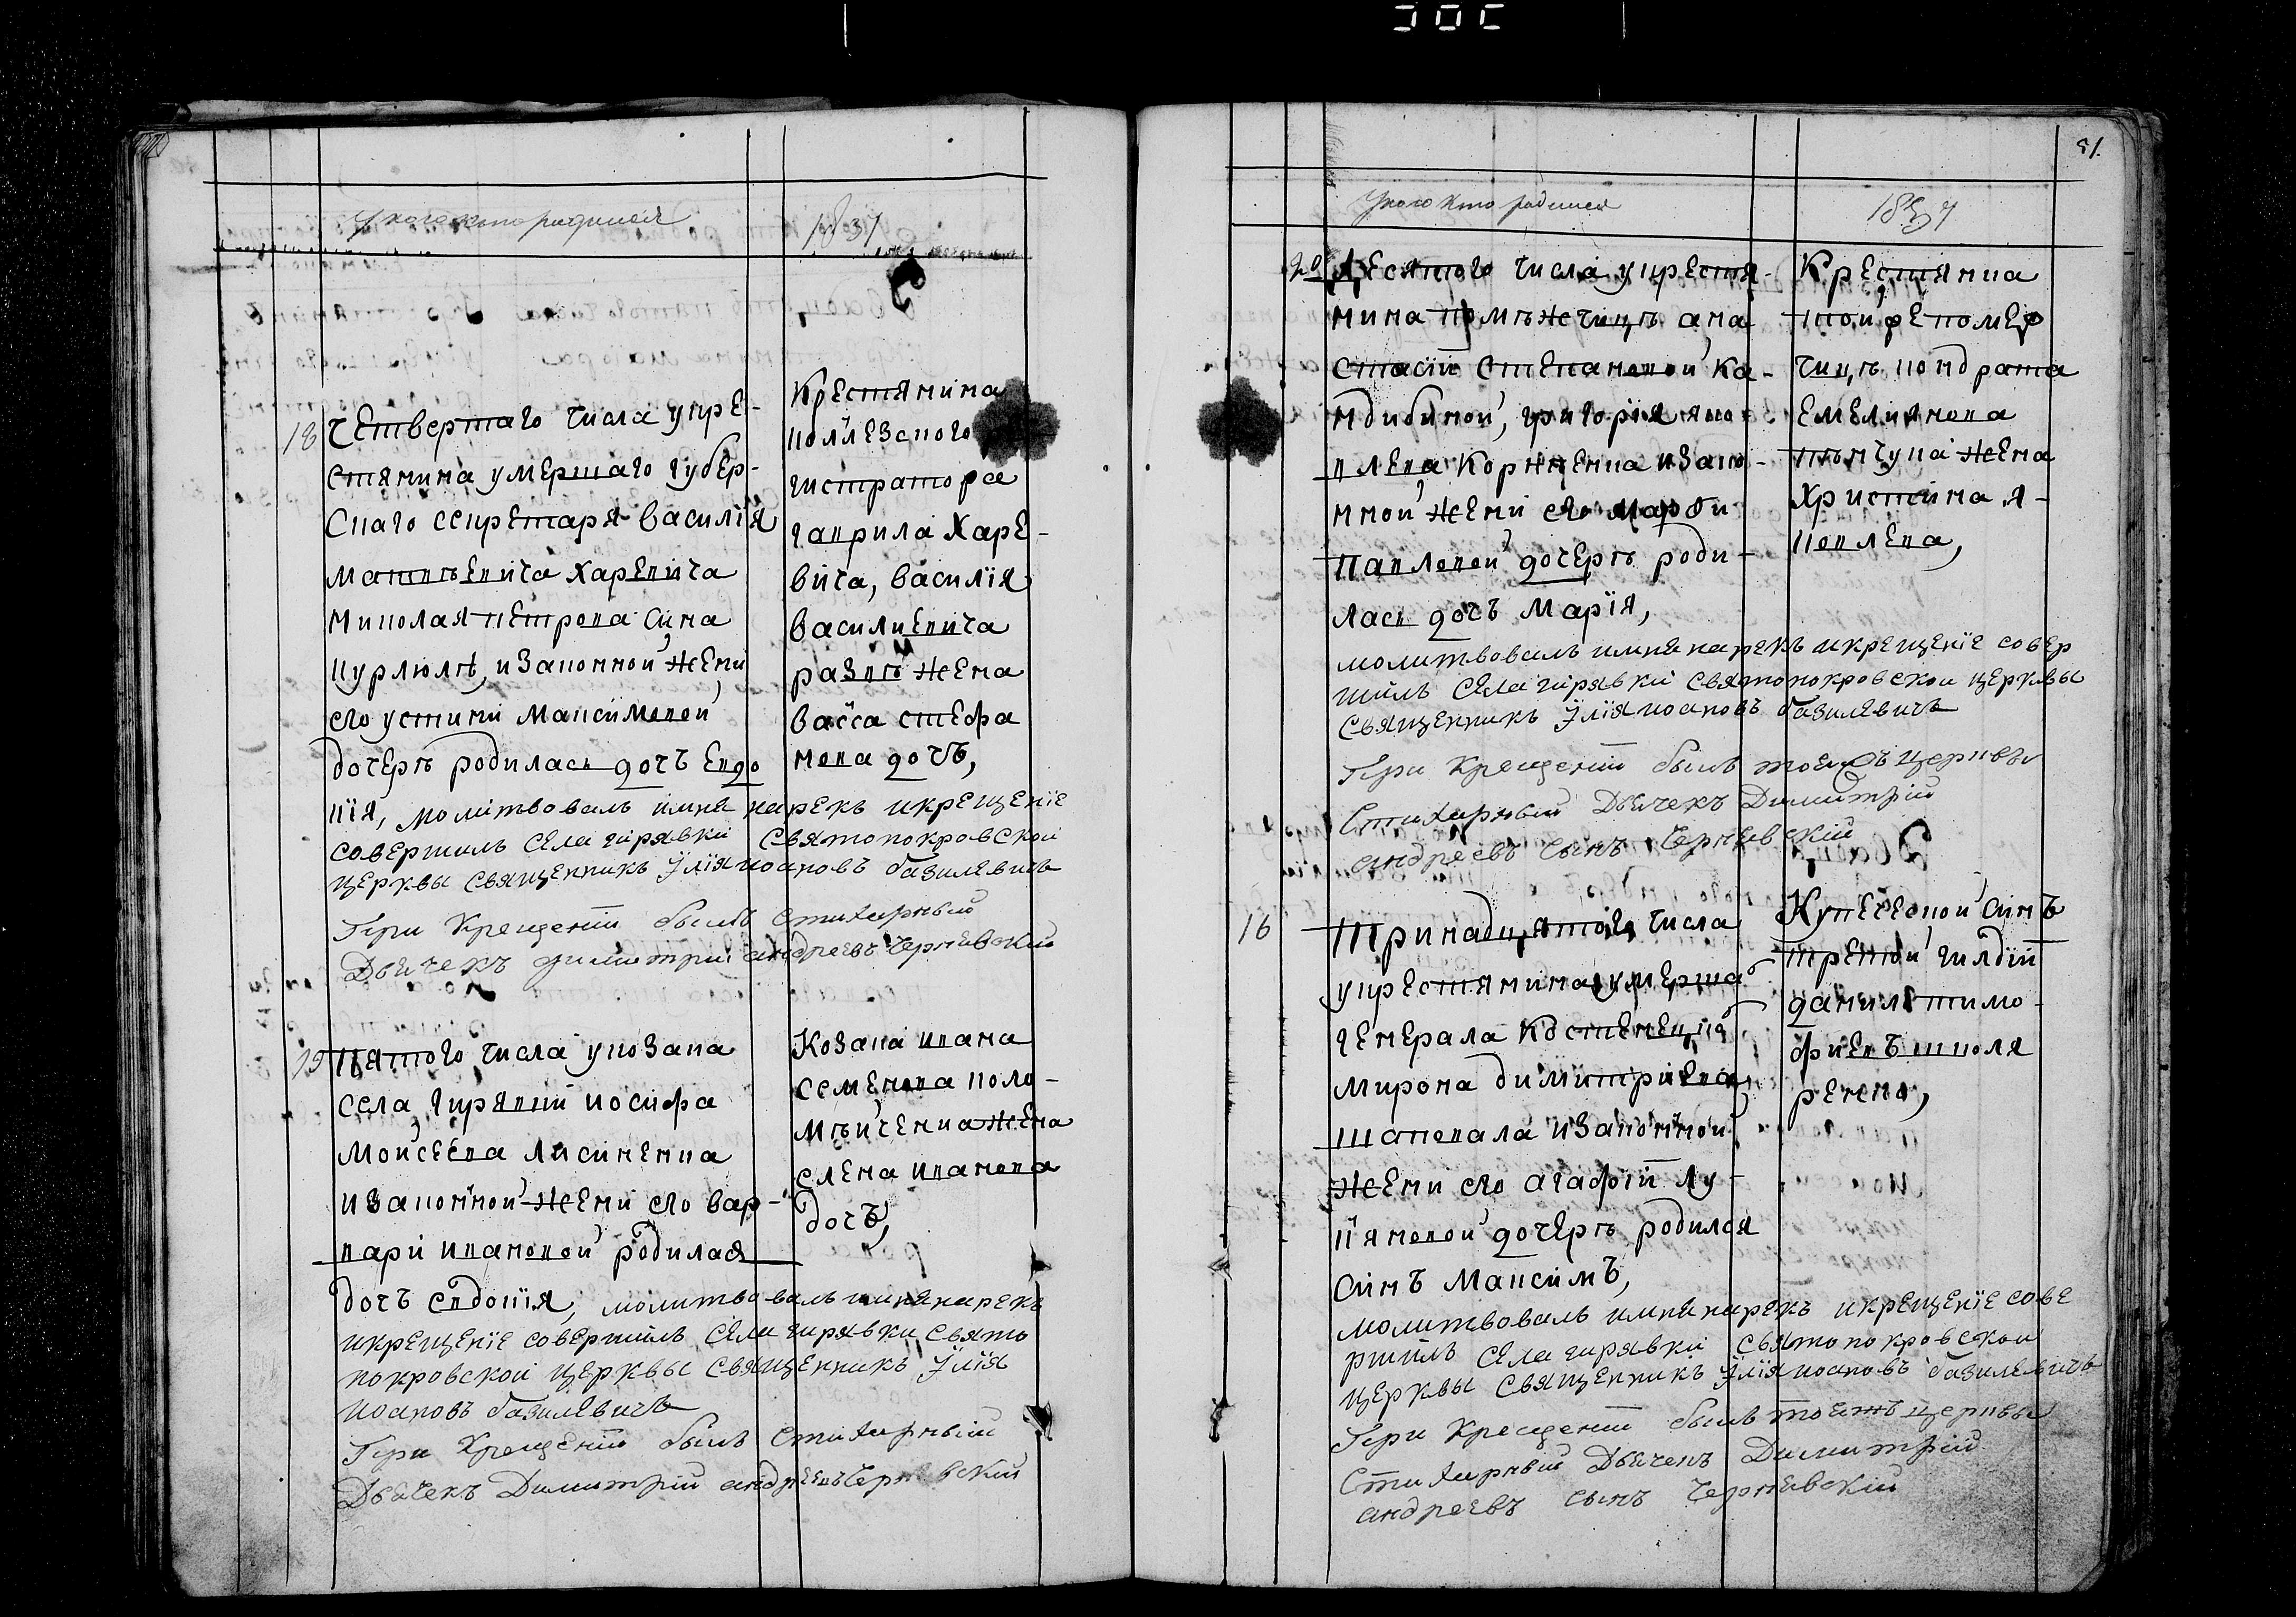 У кого кто родился
1837
18
Четвертаго числа укре-
стянина умершаго губер-
скаго секретаря василїя
матвѣевича харевича
николая петрова сина
курлюлѣ, изаконной жени
его устини максимовой
дочерѣ родилась дочъ евдо
кїя, молитвовалъ имня нарекъ икрещенїе
совершилъ села гирявки святопокровской
церквы священникъ Ілїя иоановъ базилевичъ
При Крещенїи былъ стихарный
Дьячекъ димитрий андреевъ Чернѣвский
крестянина
коллезского ре
гистратора
гаврила харе-
вича, василїя
василиевича
жена
васса стефа
нова дочъ,
19
Пятого числа укозака
села гирявки иосифа
моисеева лисиненка
изаконной жени его вар-
вари ивановой родилася
дочъ евдокїя, молитвовалъ имня нарекъ
икрещенїе совершилъ села гирявки свято
покровской церквы священникъ Ілїя
иоановъ базилевичъ
При Крещенїи былъ Стихарный
Дьячекъ Димитрїй андреевъ Чернѣвский
Козака ивана
семенова коло-
мѣйченка жена
елена иванова
дочъ,
81.
У кого кто родился
1837
20
Десятого числа укрестя-
нина помѣжчицѣ ана
стасїи степановой ка-
ндибиной, григорїя яко-
влева корнженка изако-
нной жени его марфи
павловой дочерѣ роди-
лась дочъ марїя,
молитвовалъ имня нарекъ икрещенїе совер
шилъ села гирявки святопокровской церквы
священникъ Ілїя иоановъ базилевичъ
При Крещенїи былъ тоежъ церквы
Стихарный Дьячекъ Димитрїй
андреевъ сынъ Чернѣвский
Крестянка
тойже помер
чицѣ кондрата
емелиянова
жена
христина я-
ковлева,
16
Тринадцятого числа
укрестянина умерша
генерала костенецка
мирона димитриева
шаповала изаконной
жени его агафїи лу-
кїяновой дочерѣ родился
синъ максимъ,
молитвовалъ имня нарекъ икрещенїе сове
ршилъ села гирявки святопокровской
церквы священникъ Ілїя иоановъ базилевичъ
При Крещенїи былъ тоежъ церквы
Стихарный Дьячекъ Димитрїй
андреевъ сынъ Чернѣвский
Купеческой синъ
третой гилдїи
данилъ тимо-
фиевъ шполя
ренко,